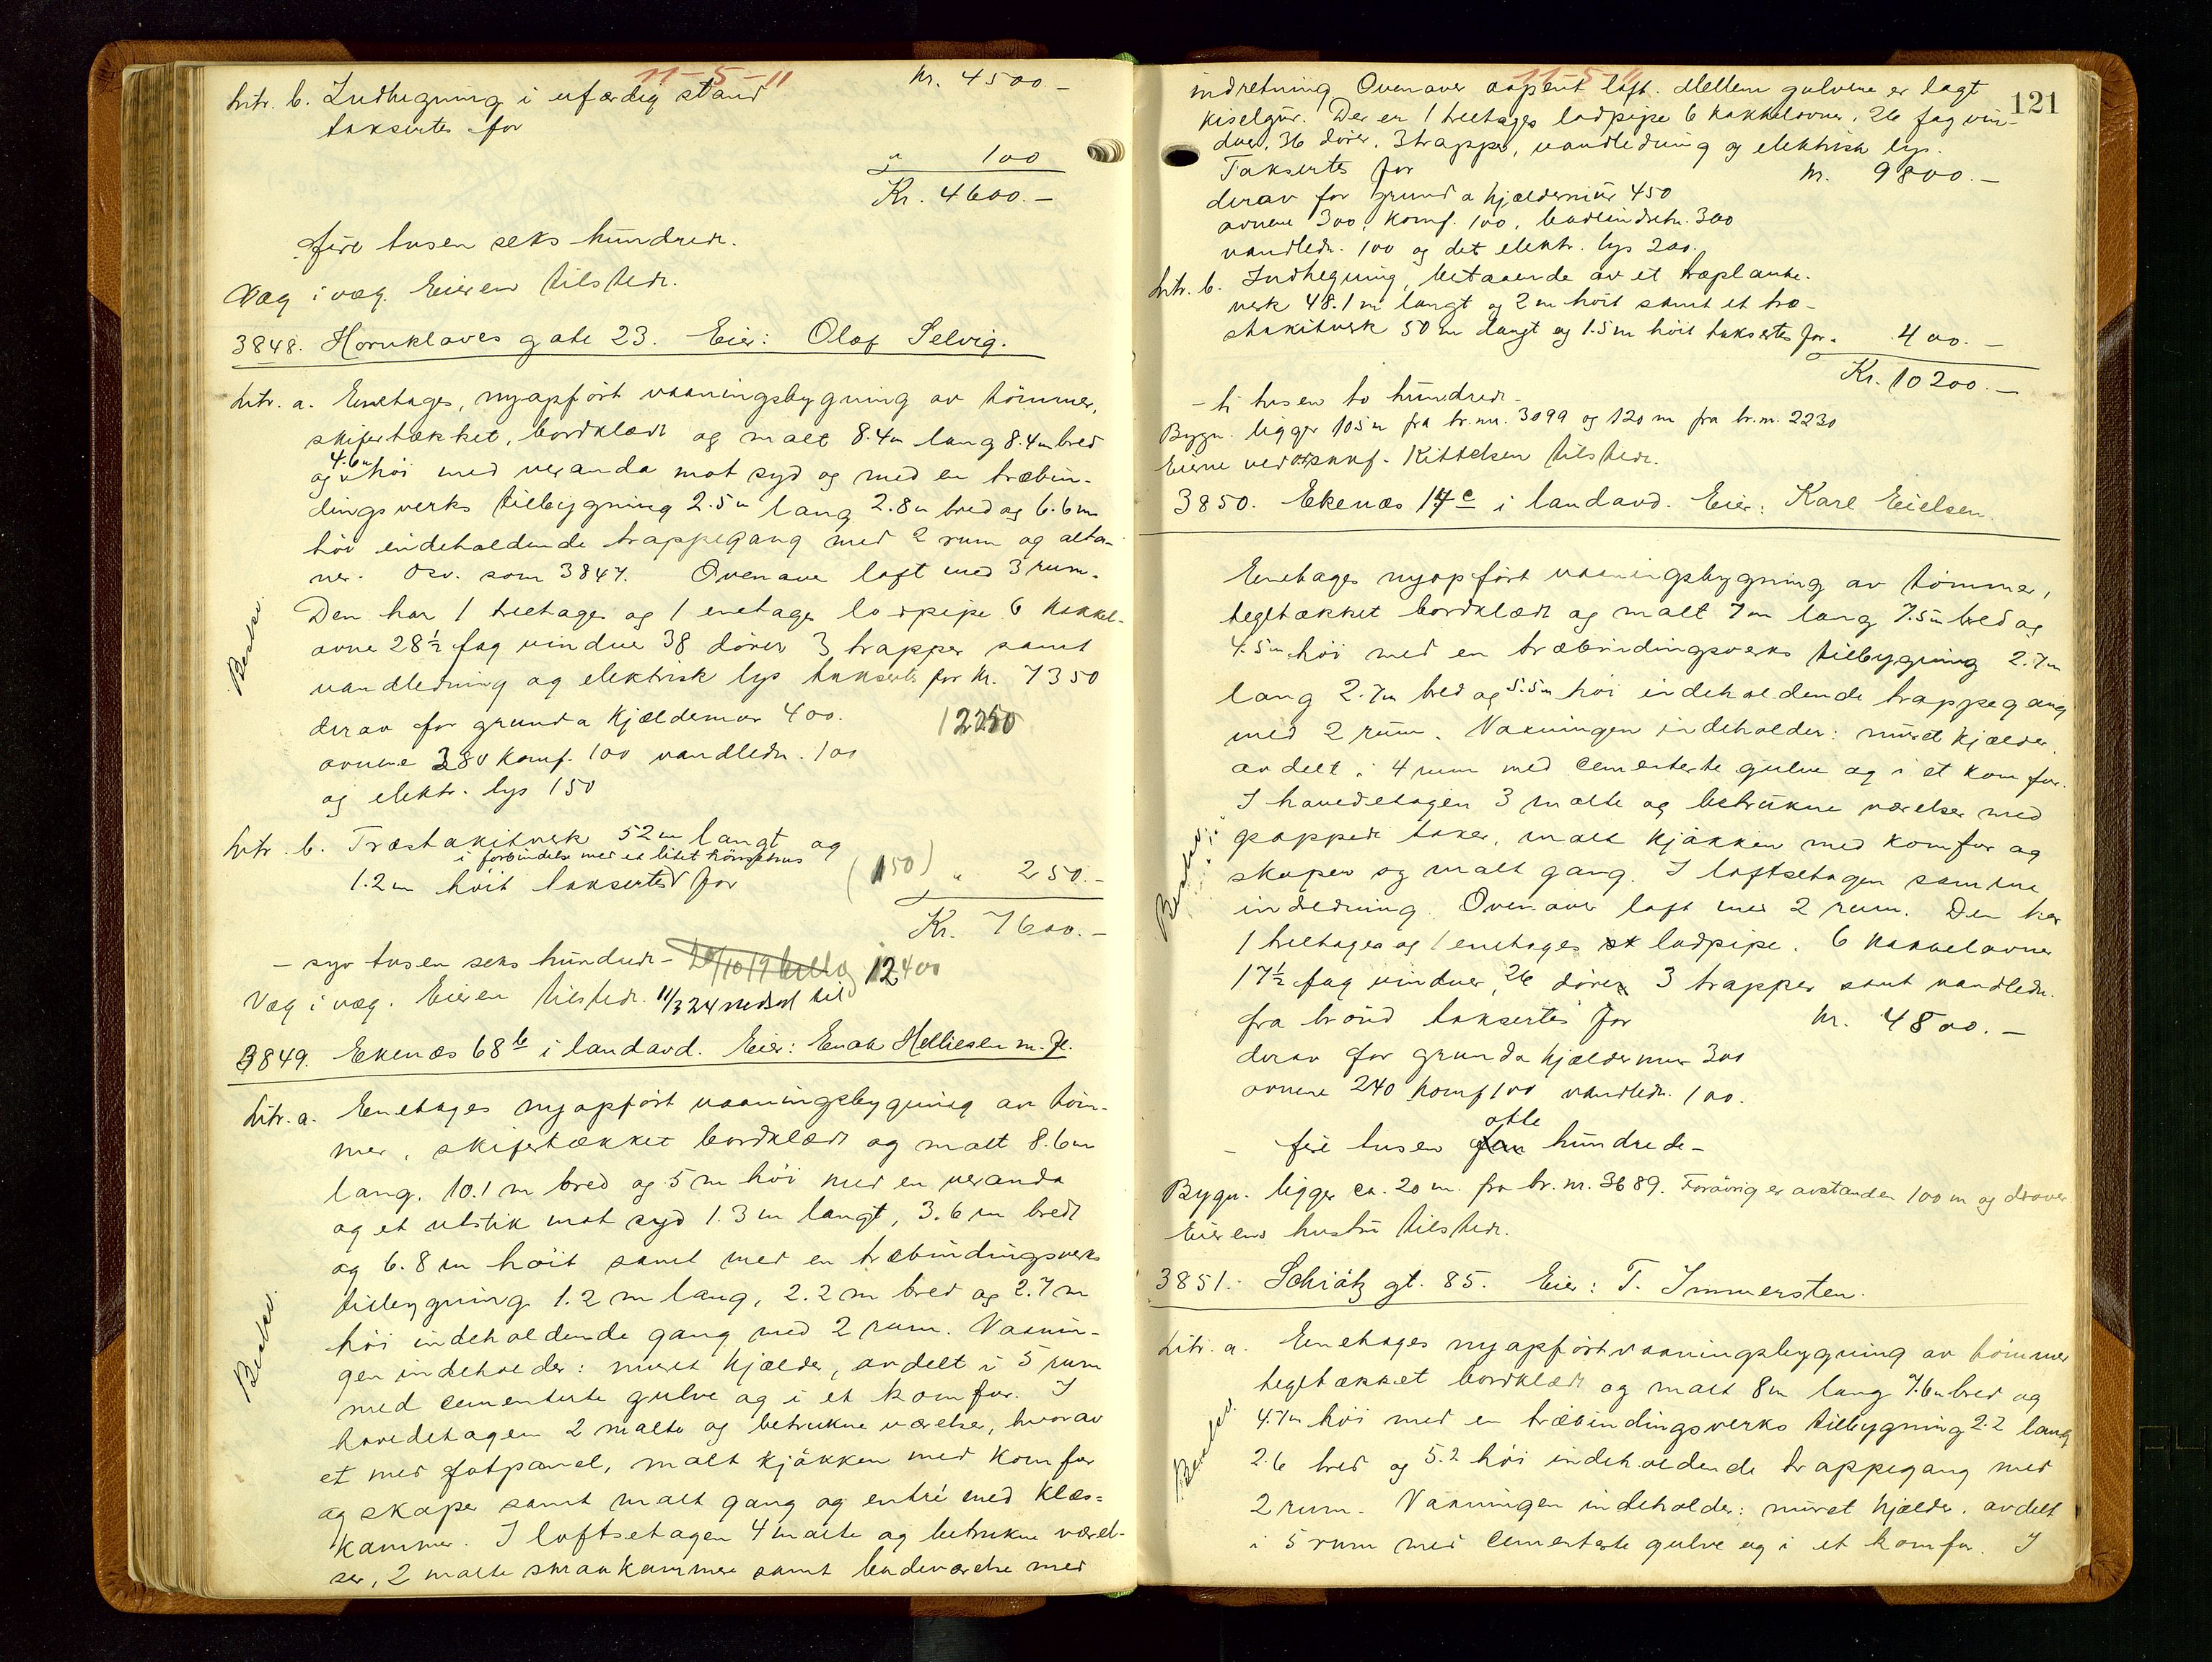 11-5-11
Litr. b. Indhegning i uferdig stand Kr. 4500 -
taksertes for
" 100
Kr. 4600. -
fire tusen seks hundrede.
Væg i væg. Eieren tilstede.
3848. Hornklaves gate 23. Eier: Olaf Selvig.
Litr. a. Enetages, nyopført vaaningsbygning av tømmer,
skifertækket, bordklædt og malt 8.4m lang 8.4m bred
og 4.6m høi med veranda mot syd og med en træbin-
dingsverks tilbygning 2.5m lang 2.8m bred og 6.6m
høi indeholdende trappegang med 2 rum og alta-
ner. Osv. som 3847. Ovenover loft med 3 rum.
Den har 1 treetages og 1 enetages lodpipe 6 kakkel-
ovne 28½ fag vindue 38 dører 3 trapper samt
vandledning og elektrisk lys taksertes for Kr. 7350
derav for grund a kjældermur 400. 12250
ovnene 380 komf. 100 vandledn. 100
og elektr. lys 150
Beskr.
Litr. b. Træstakitverk 52m langt og
i forbindelse med et litet hønsehus
1.2m høit taksertes for (150) " 250.-
Kr. 7600.-
- syv tusen seks hundrede - 12400
Væg i væg. Eieren tilstede. 11/3 24 nedsat til
3849. Ekenæs 68b i landavd. Eier: Enok Helliesen m. fl.
Litr. a. Enetages nyopført vaaningsbygning av tøm-
mer, skifertækket bordklædt og malt 8.6m
lang, 10.1m bred og 5m høi med en veranda
og et utstik mot syd 1.3m langt, 3.6m bredt
og 6.8m høit samt med en træbindingsverks
tilbygning 1.2m lang, 2.2m bred og 2.7m
høi indeholdende gang med 2 rum. Vaanin-
gen indeholder: muret kjælder, avdelt i 5 rum
med cementerte gulve og i et komfur. I
hovedetagen 2 malte og betrukne værelser, hvorav
et med fotpanel, malt kjøkken med komfur
og skaper samt malt gang og entré med klæs-
kammer. I loftsetagen 4 malte og betrukne værel-
ser, 2 malte smaakammere samt badeværelse med
Beskr.
121
11-5-11
indretning Ovenover aapent loft. Mellem gulvene er lagt
kiselgur. Der er 1 treetages lodpipe 6 kakkelovner, 26 fag vin-
duer, 36 dører, 3 trapper, vandledning og elektrisk lys.
Taksertes for Kr. 9800.-
derav for grund a kjældermur 450
ovnene 300, komf. 100, badeindretn. 300
vandledn. 100 og det elektr. lys 200.
Litr. b. Indhegning, bestaaende av et træplanke-
verk 48.1m langt og 2m høit samt et træ-
stakitverk 50m langt og 1.5m høit taksertes for " 400.-
Kr. 10200.-
- ti tusen to hundrede -
Bygn. ligger 105m fra br.nr. 3099 og 120m fra br.nr. 2230
Eierne ved Kittelsen tilstede.
3850. Ekenæs 14c i landavd. Eier: Karl Eielsen.
Enetages nyopført vaaningsbygning av tømmer,
tegltækket bordklædt og malt 7m lang 7.5m bred og
4.5m høi med en træbindingsverks tilbygning 2.7m
lang 2.7m bred og 5.5m høi indeholdende trappegang
med 2 rum. Vaaningen indeholder: muret kjælder,
avdelt i 4 rum med cementerte gulve og i et komfur.
I hovedetagen 3 malte og betrukne værelser med
pappede taker, malt kjøkken med komfur og
skaper og malt gang. I loftsetagen samme
indredning. Ovenover loft med 2 rum. Den har
1 treetages og 1 enetages lodpipe. 6 kakkelovner
17½ fag vinduer, 26 dører 3 trapper samt vandledn.
fra brønd taksertes for Kr. 4800.-
derav for grund a kjældermur 300
ovnene 240 komf 100 vandledn. 100.
Beskr.
otte
- fire tusen hundrede -
Bygn. ligger ca. 20m. fra br. nr. 3689. Forøvrig er avstanden 100m og drøver
Eierens hustru tilstede.
3851. Schiøtz gt. 85. Eier: T. Immersten.
Litr. a. Enetages nyopført vaaningsbygning av tømmer
teglstækket bordklædt og malt 8m lang 7.6m bred og
4.7m høi med en træbindingsverks tilbygning 2.2 lang
2.6 bred og 5.2 høi indeholdende trappegang med
2 rum. Vaaningen indeholder: muret kjælder, avdelt
i 5 rum med cementerte gulve og i et komfur. I
Beskr.